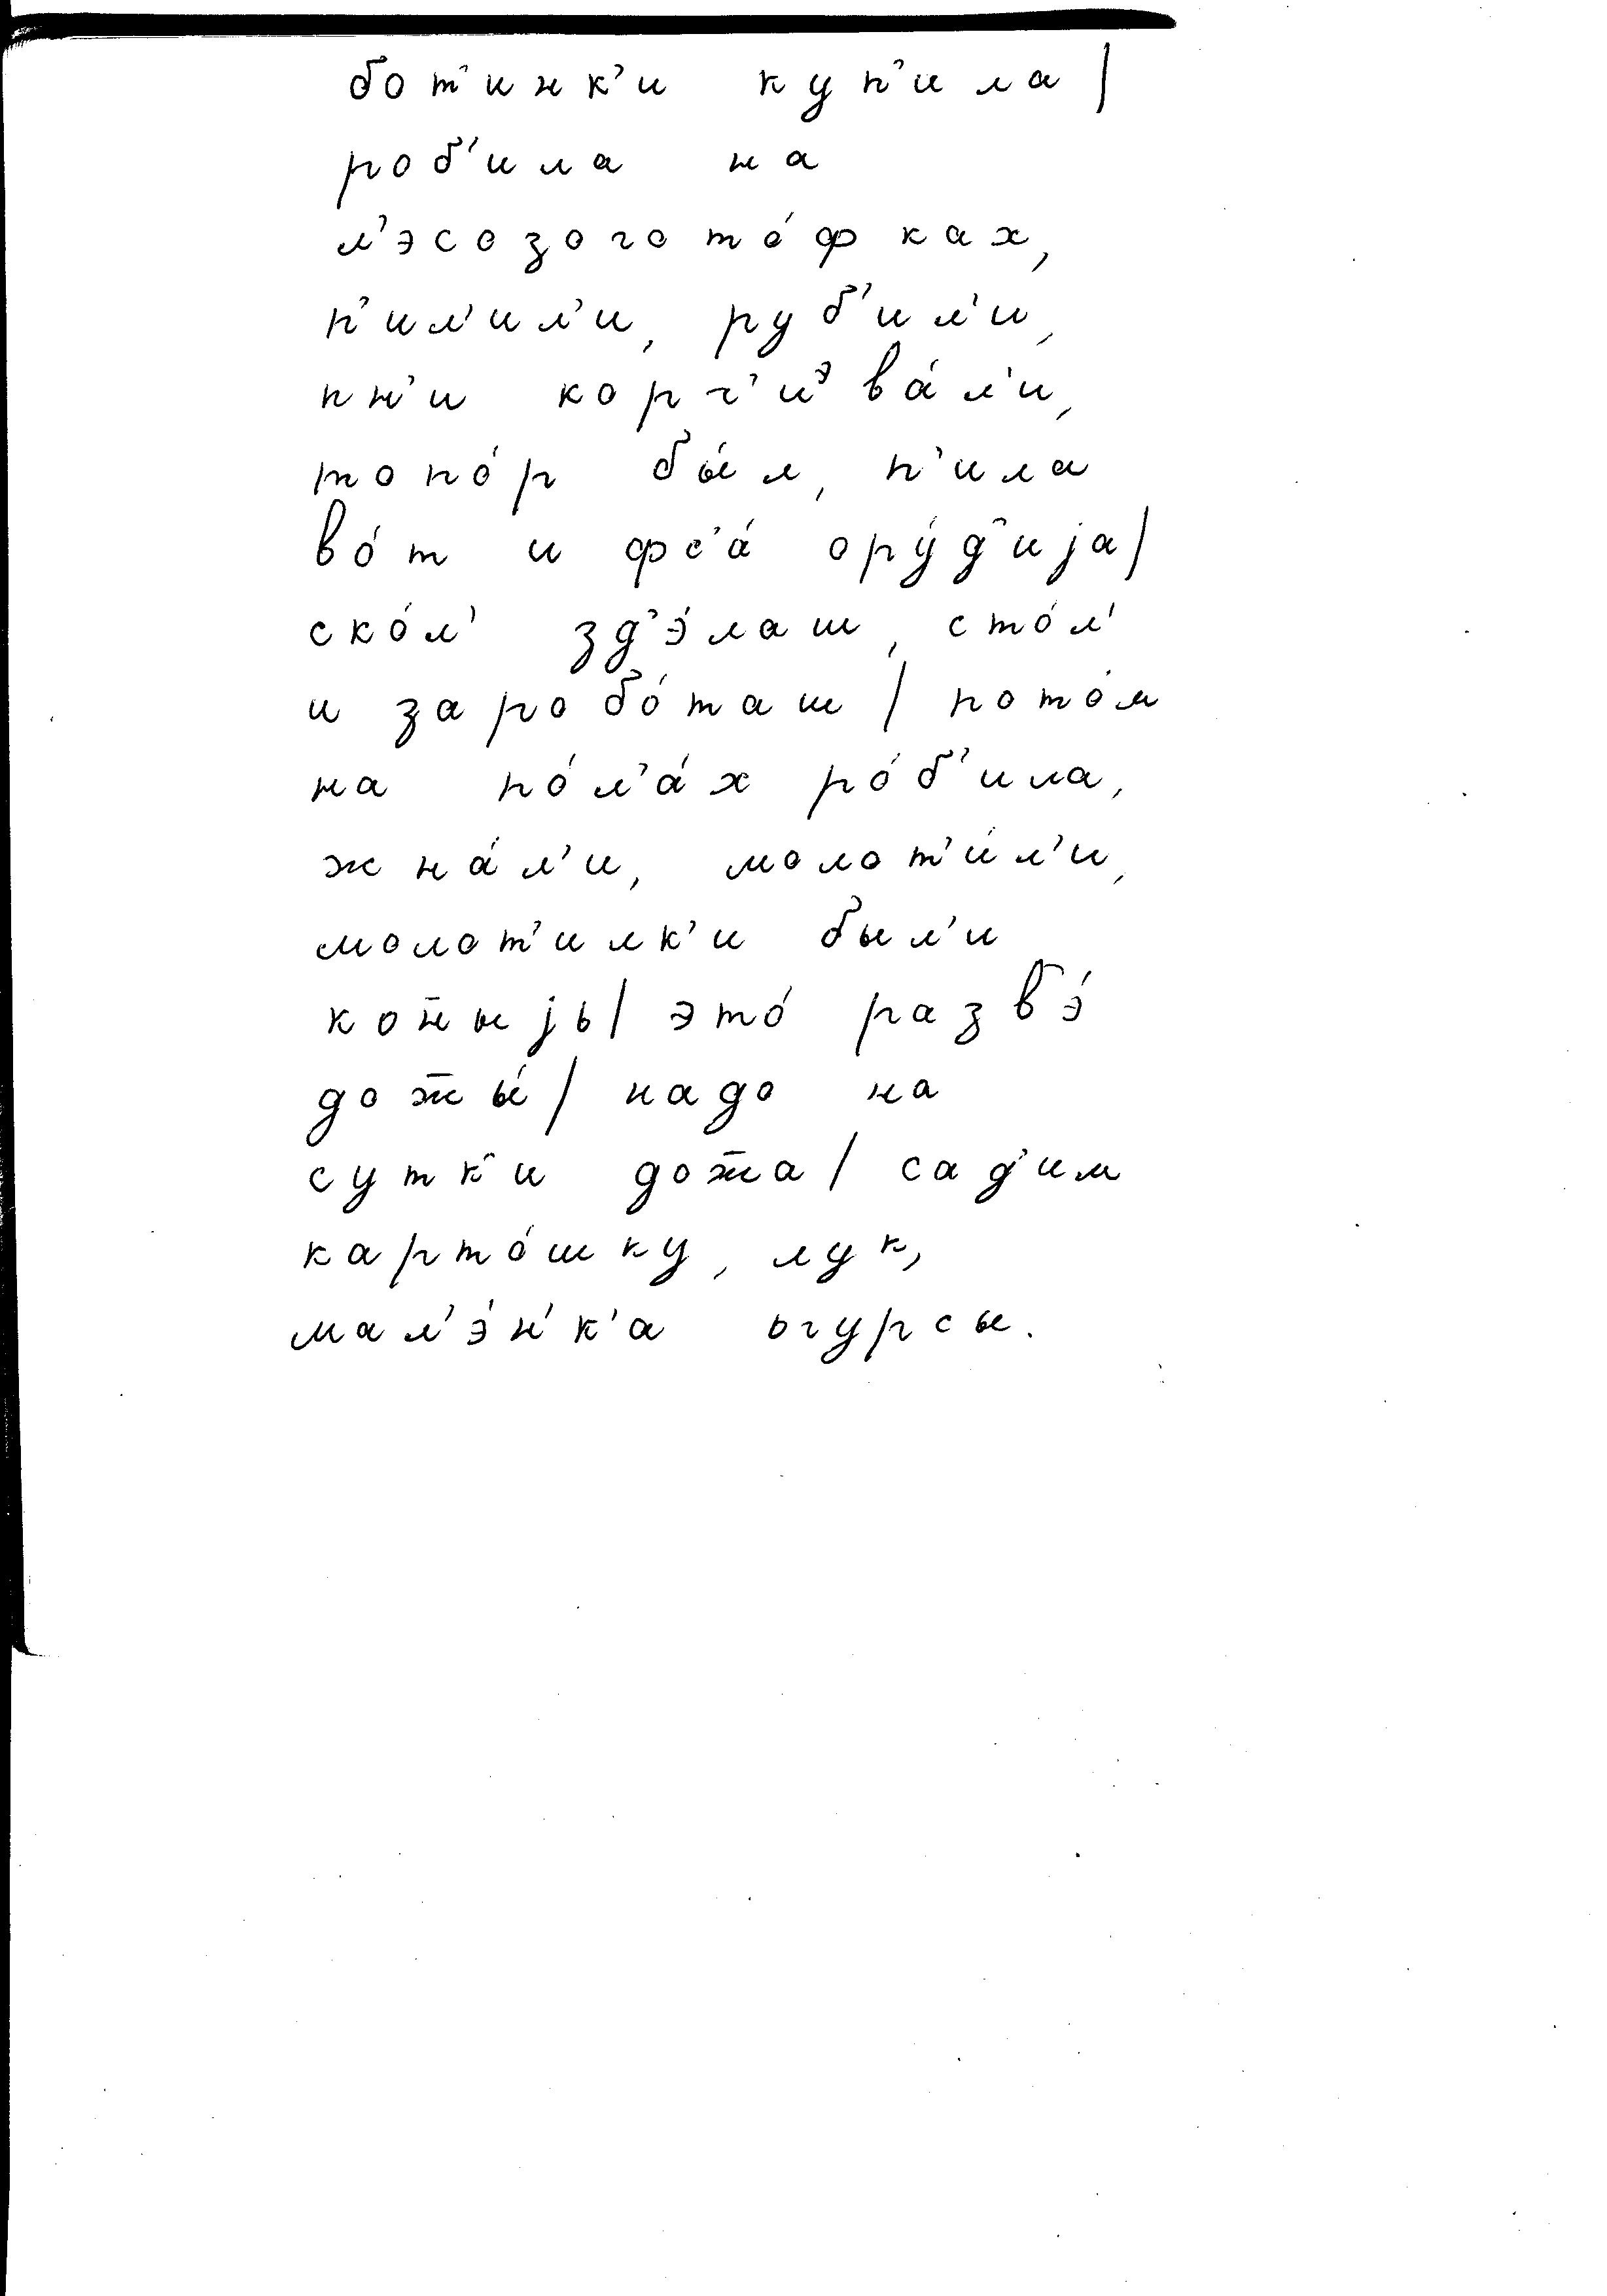 бот'инк'и куп'ила |
роб'ила на
л'эсозогото́фках,
п'ил'ил'и, руб'ил'и,
пн'и корч'иᵊва́л'и,
топо́р бы́л, п'ила
во́т и фс'а́ ору́д'ија |
ско́л' зд'э́лаш, сто́л'
и заробо́таш | пото́м
на по́л'а́х ро́б'ила,
жна́л'и, молот'и́л'и,
молот'илк'и был'и
кон̄ыјь | это́ разв'э́
дож̄ы́ | надо на
сутк'и дож̄а | сад'им
карто́шку, лук,
мал'э́н'к'а ъгурсы.